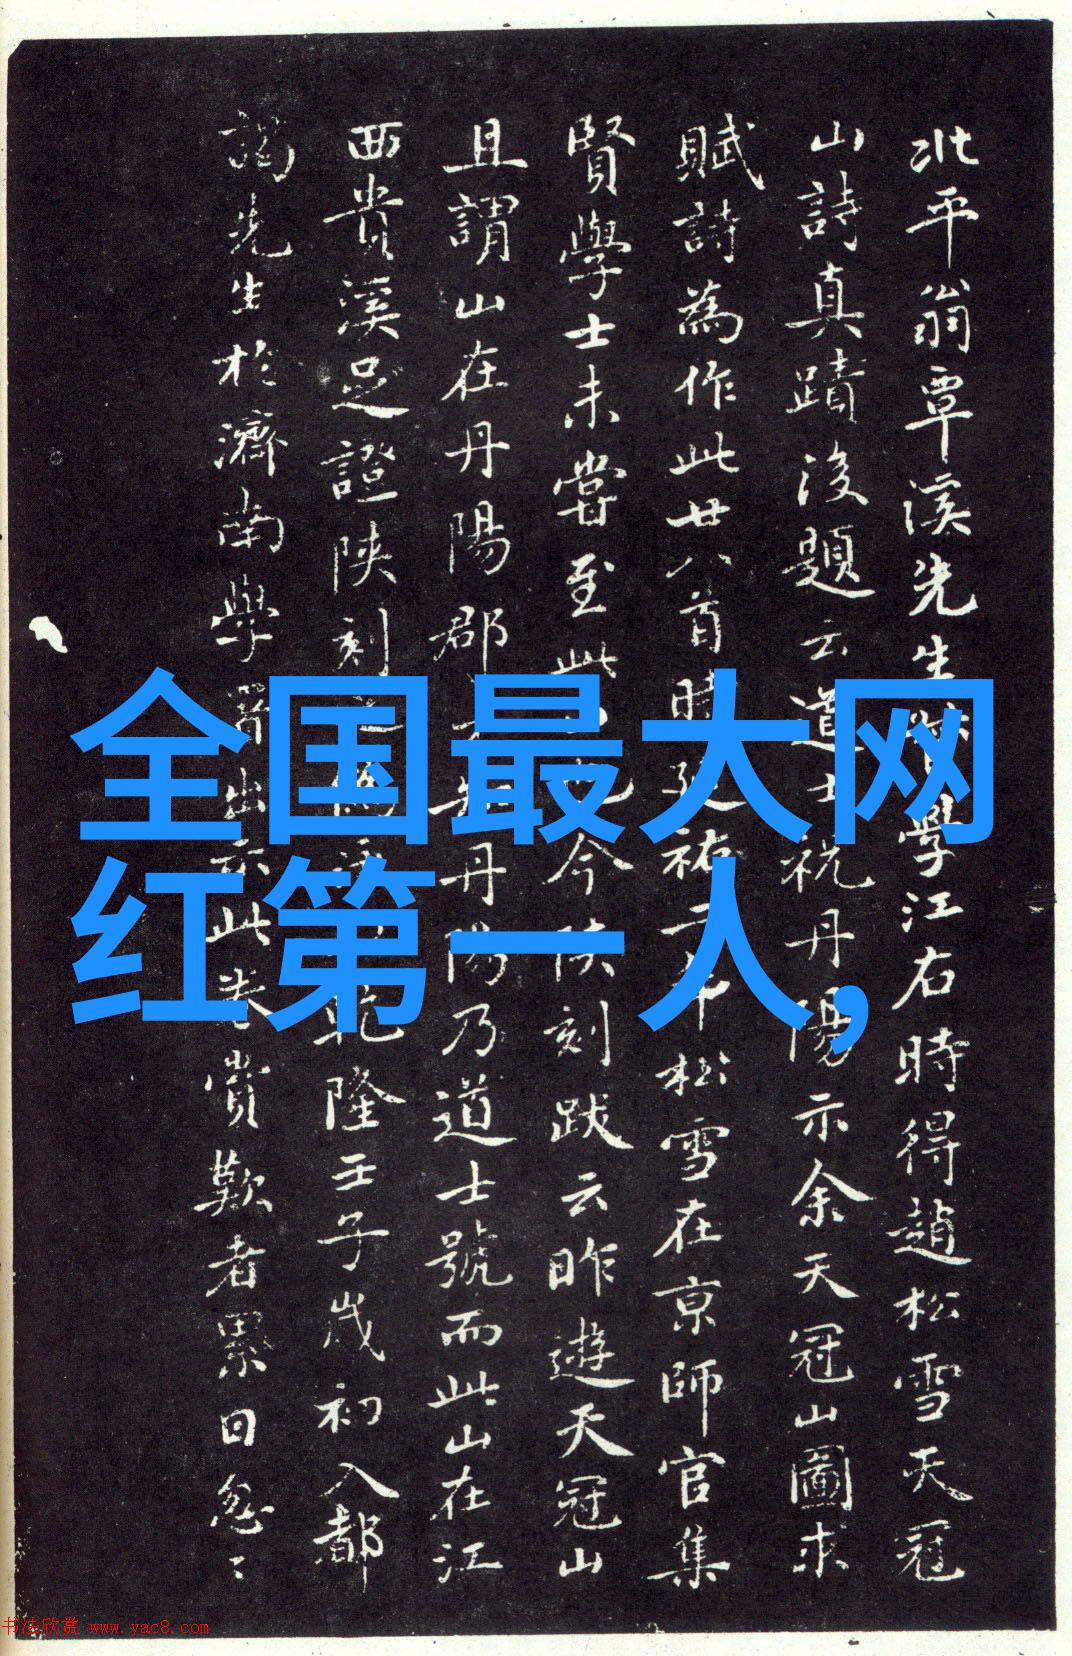 全国最大网
红第一人,
北平翁覃溪先生學江右時得趙松雪天冠
山詩真蹟後題云道士祝丹陽示余天冠山圖求
賦詩為作此廿八首時延祐二年松雪在京師官集
賢學士未嘗至此也今陝刻跋云昨遊天冠山
且謂山在丹陽郡丹陽乃道士號而此山在江
西貴溪足證陝刻乾隆壬子歲初入都
謁先生於濟南學署出示此卷賞歎者累日忽〻
书法欣赏 www.yac8.com